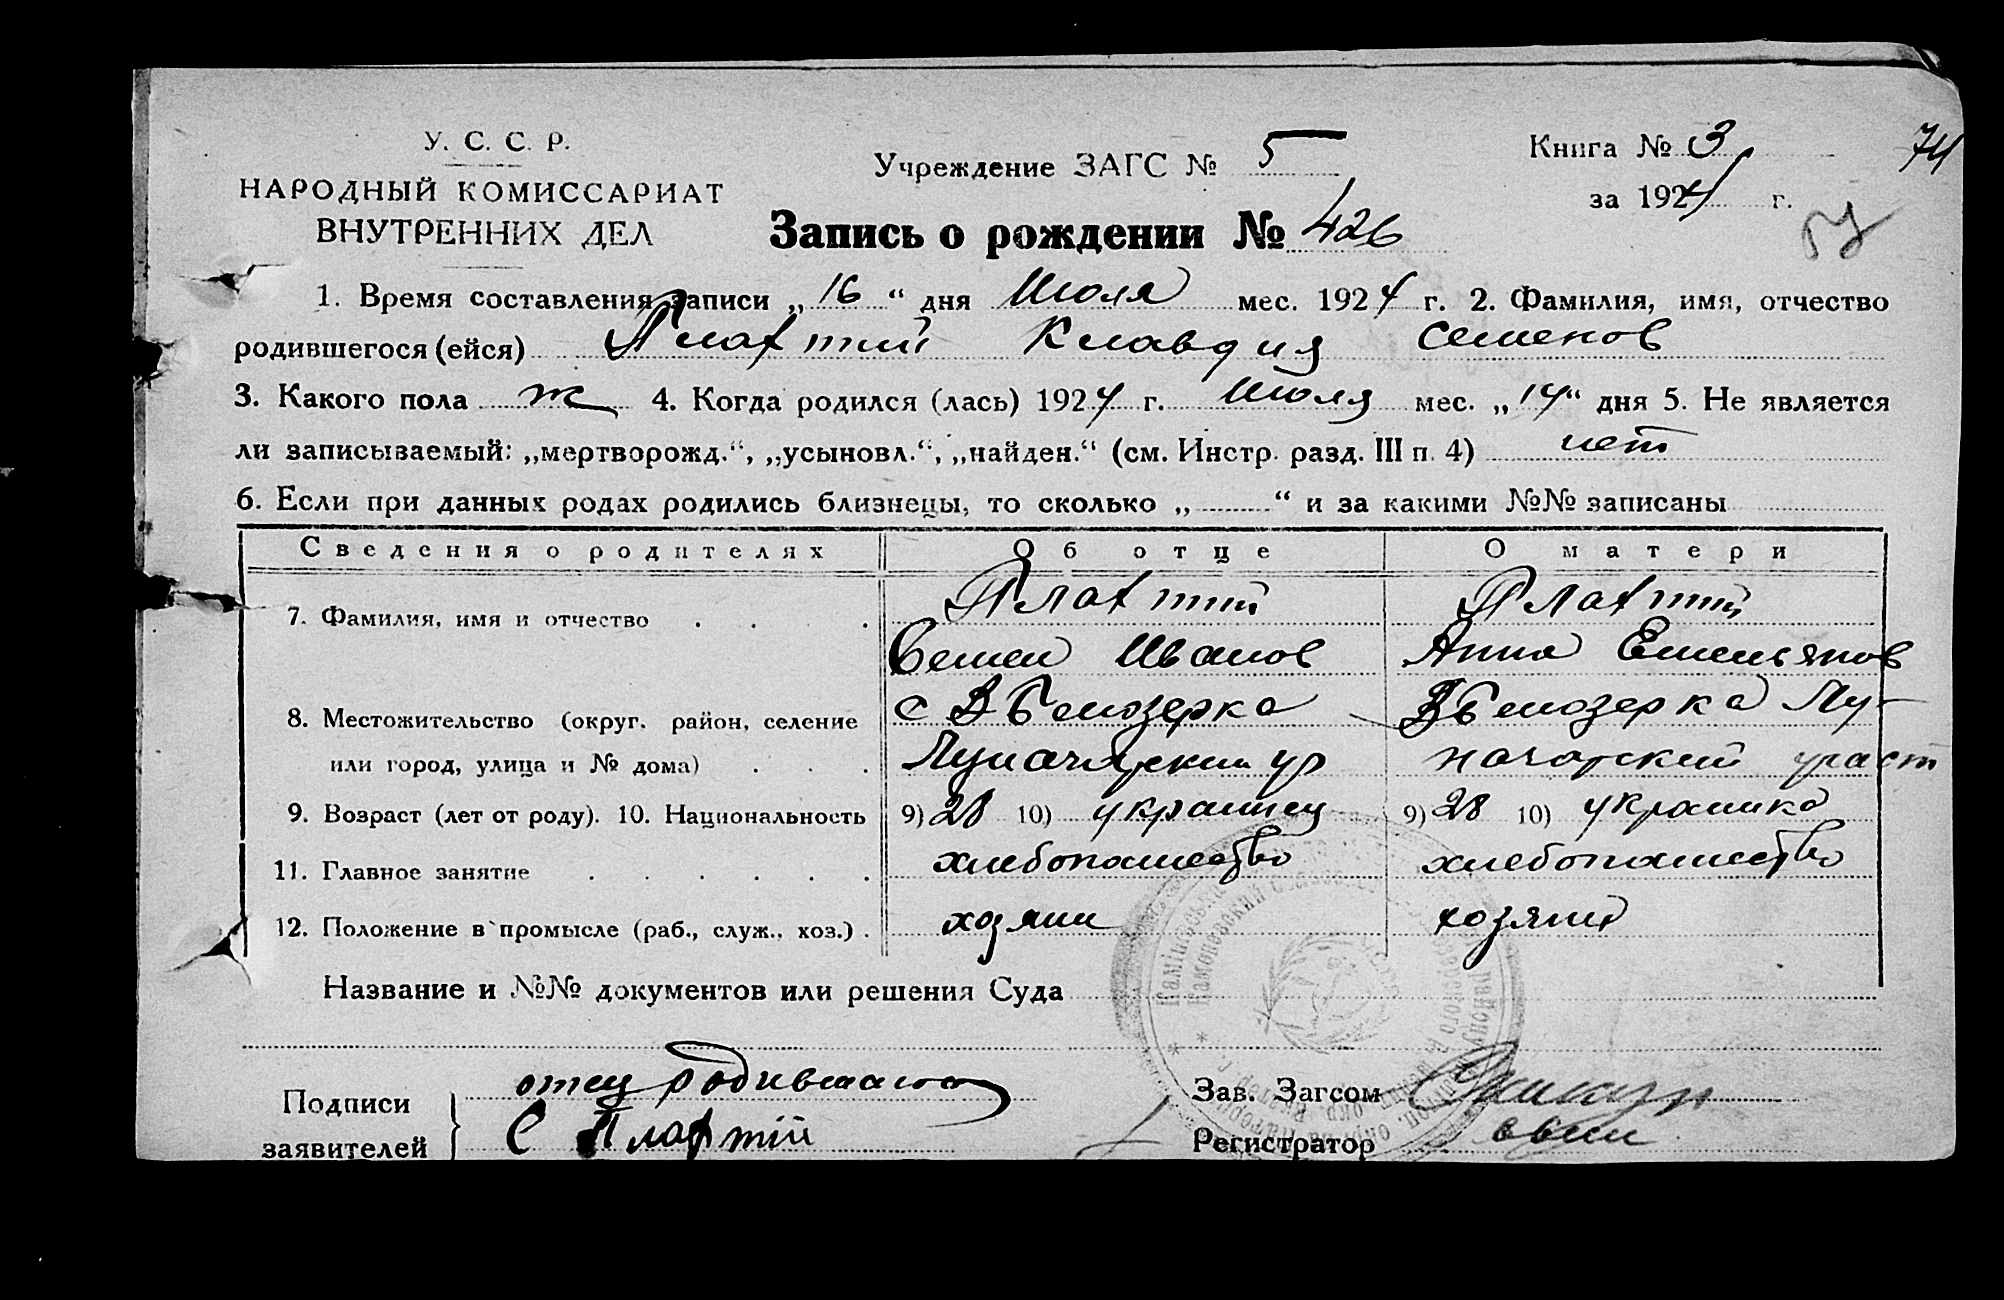 У. С. С. Р.
НАРОДНЫЙ КОМИССАРИАТ
ВНУТРЕННИХ ДЕЛ
Учреждение ЗАГС № 5
Книга № 3
74
за 1924 г.
Запись о рождении № 426
1. Время составления записи „16“ дня Июля мес. 1924 г. 2. Фамилия, имя, отчество
родившегося (ейся) Плахтий Клавдия Семенов
3. Какого пола ж 4. Когда родился (лась) 1924 г. Июля мес. „14“ дня 5. Не является
ли записываемый: „мертворожд.“, „усыновл.“, „найден.“ (см. Инстр. разд. III п. 4) нет
6. Если при данных родах родились близнецы, то сколько „ “ и за какими №№ записаны
Сведения о родителях Об отце О матери
7. Фамилия, имя и отчество Плахтий Плахтий
Семен Иванов Анна Емельянов
8. Местожительство (округ. район, селение с В Белозерка В Белозерка Лу-
или город, улица и № дома) Луначарский ур начарский участ
9. Возраст (лет от роду). 10. Национальность 9) 28 10) украинец 9) 28 10) украинка
11. Главное занятие хлебопашество хлебопашество
12. Положение в промысле (раб., служ., хоз.) хозяин хозяин
Название и №№ документов или решения Суда
Подписи отец родившагося Зав. Загсом
заявителей С Плахтій Регистратор